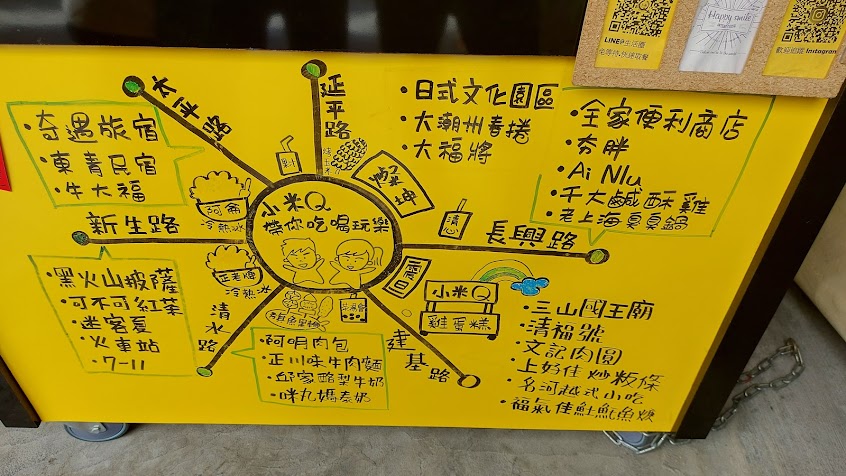 LINE@生活圈
Happy smile
歡迎追蹤 Instagram
太平路
延平路
・日式文化園區
・大潮州春捲
・大福將
・全家便利商店
・夯胖
・Ai Nlu
・千大鹹酥雞
・老上海臭臭鍋
・奇遇旅宿
・東青民宿
・牛大福
燦坤
清心
阿倫
冷熱冰
小米Q
帶你吃喝玩樂
新生路
長興路
震旦
小米Q
雞蛋糕
正老牌
冷熱冰
・黑火山披薩
・可不可紅茶
・迷客夏
・火車站
・7-11
清水路
・阿明肉包
・正川味牛肉麵
・邱家酪梨牛奶
・咪丸媽泰奶
建基路
・三山國王廟
・清福號
・文記肉圓
・上好佳炒粄條
・名河越式小吃
・福氣佳魠魠魚焿